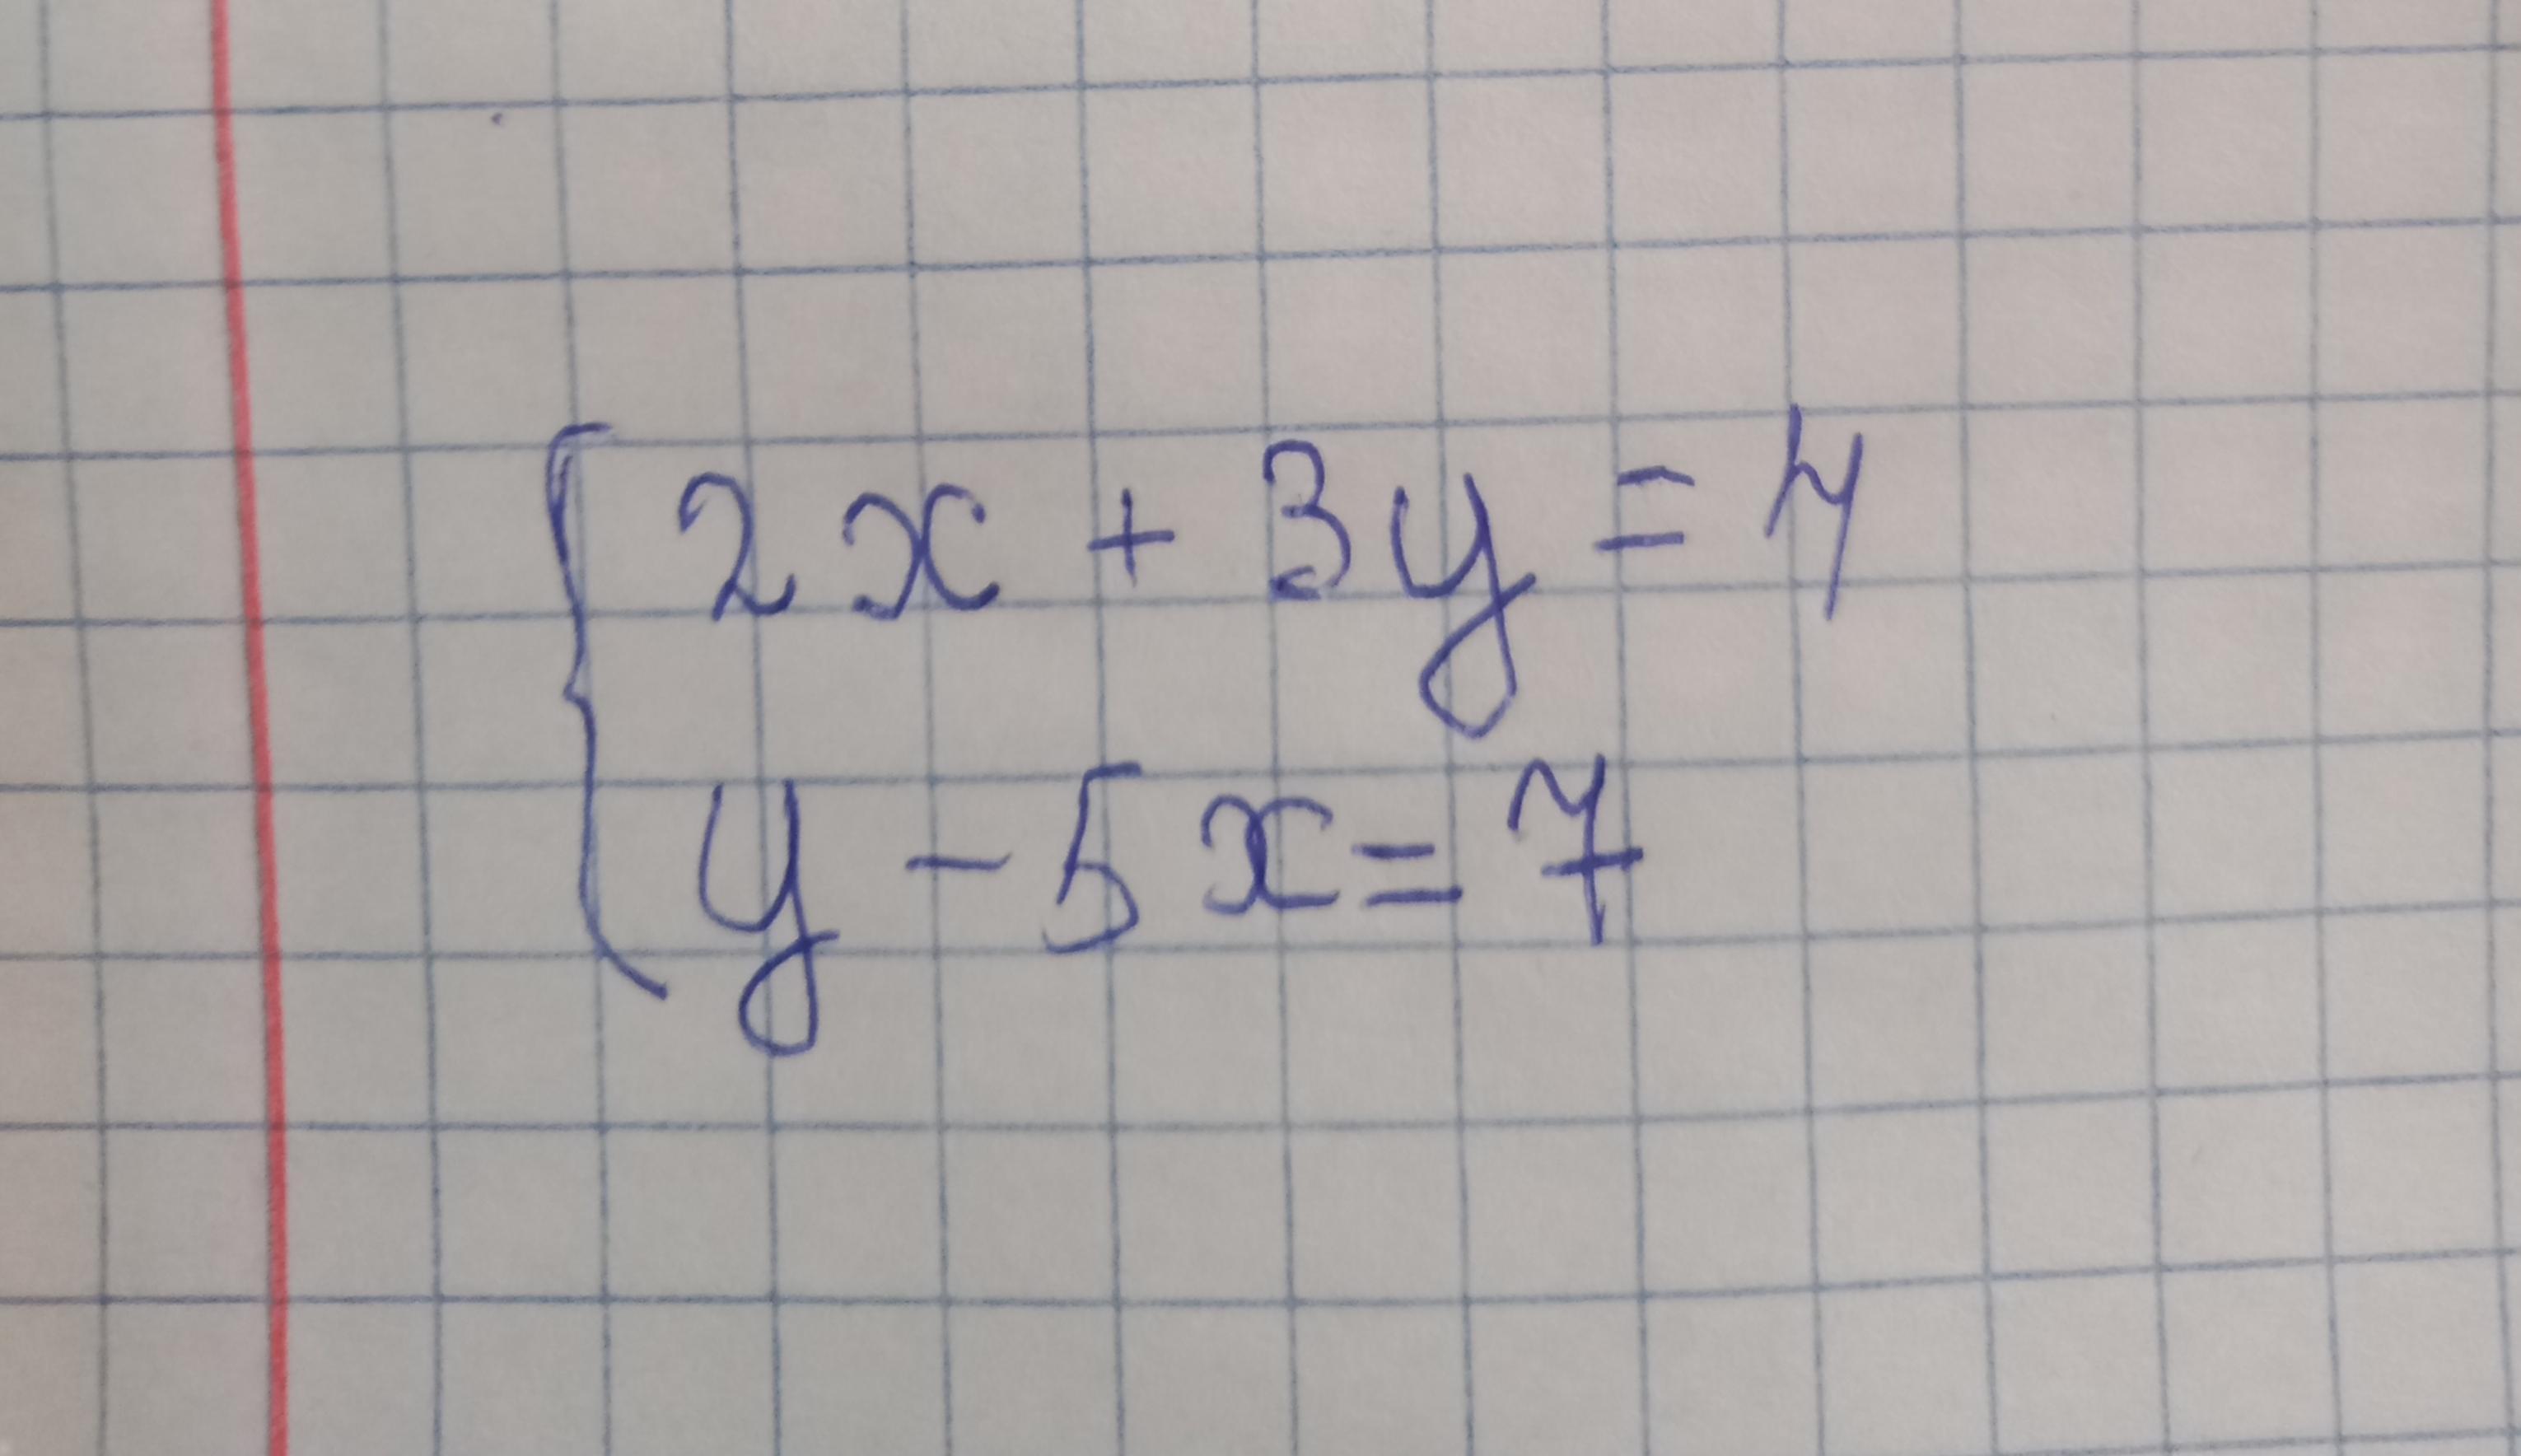 2x + 3y = 4
y - 5x = 7